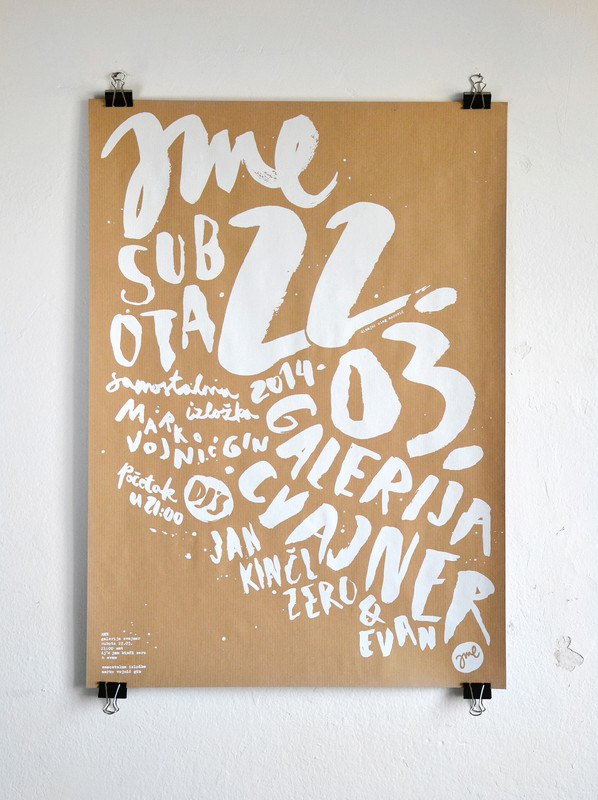 ame
SUB
OTA
22.
03.
2014.
samostalna
izložba
MARKO
VOJNIĆ GIN
GALERIJA
CVAJNER
Početak
u 21:00
DJ'S
JAN
KINČL
ZERO
&
EVAN
ame
AME
galerija cvajner
subota 22.03.
21:00 sati
dj's jan kinčl zero
& evan
samostalna izložba
marko vojnić gin